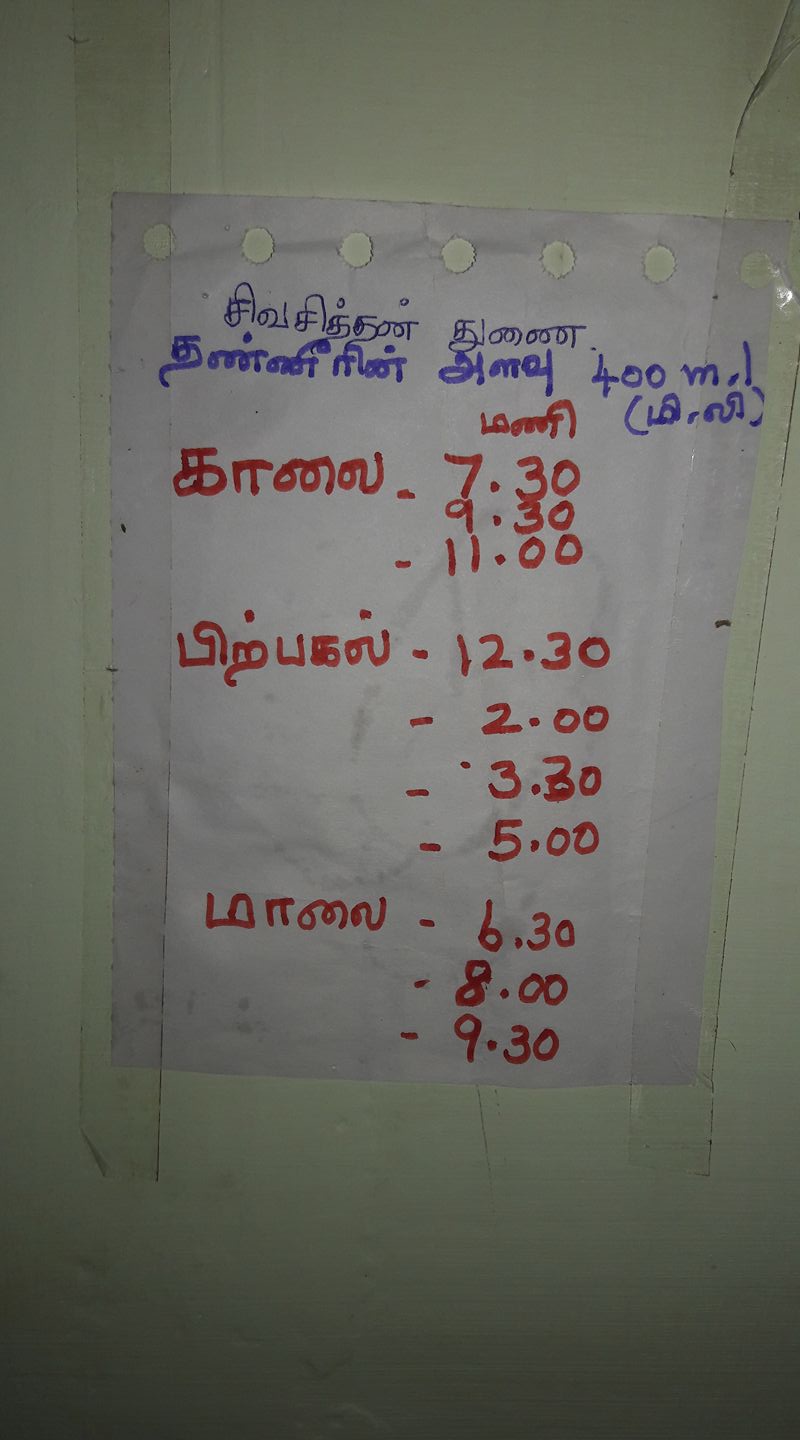 சிவசித்தன் துணை.
தண்ணீரின் அளவு 400 m.l
(மி.லி)
மணி
காலை - 7.30
9.30
- 11.00
பிற்பகல் - 12.30
- 2.00
- 3.30
- 5.00
மாலை - 6.30
- 8.00
- 9.30